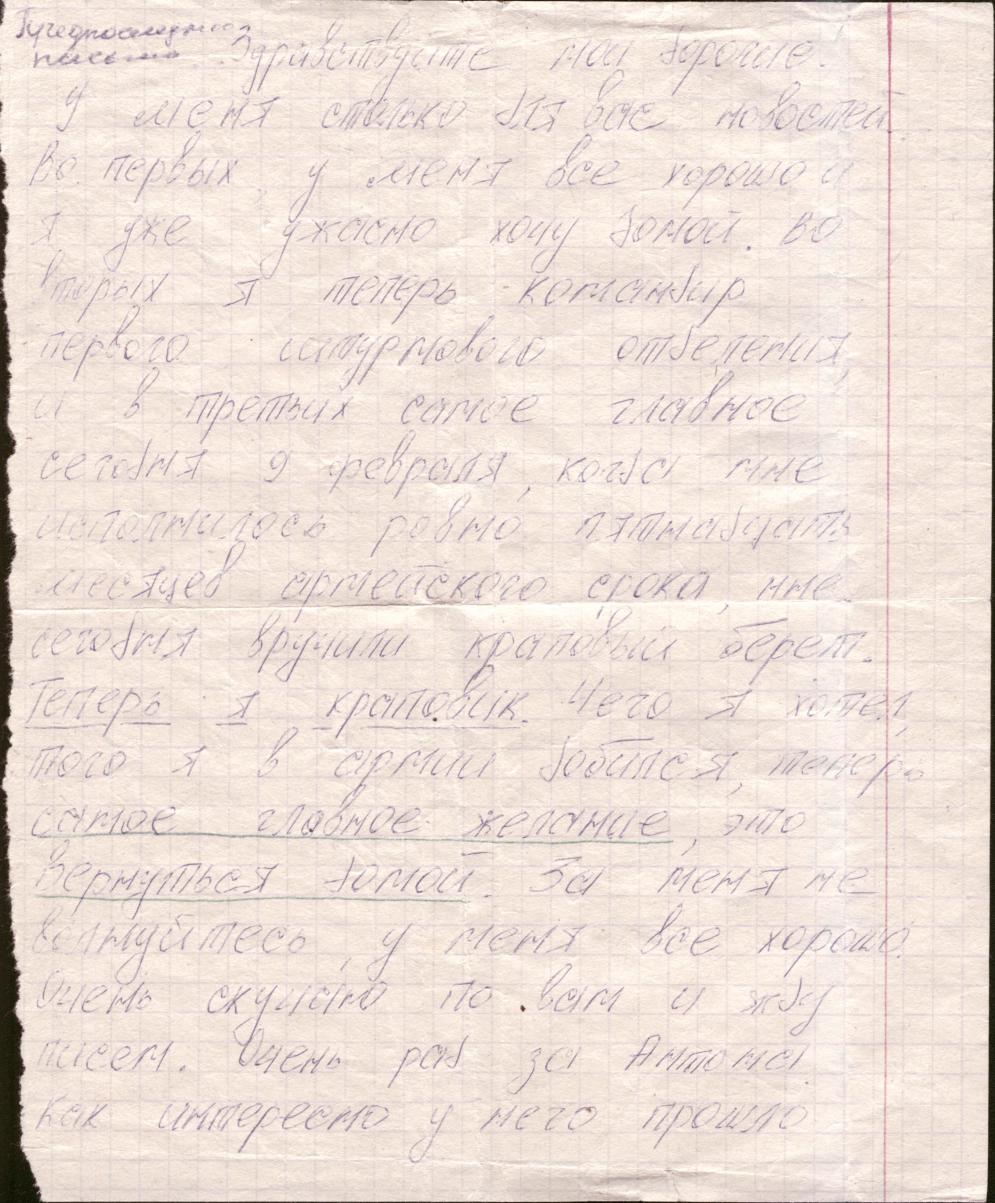 Предпоследнее
письмо.
Здравствуйте мои дорогие.
У меня столько для вас новостей
Во первых, у меня все хорошо и
я уже ужасно хочу домой. Во
вторых я теперь командир
первого штурмового отделения,
и в третьих самое главное
сегодня 9 февраля, когда мне
исполнилось ровно пятнадцать
месяцев армейского срока, мне
сегодня вручили краповый берет.
Теперь я краповик. Чего я хотел,
того я в армии добился, теперь
самое главное желание, это
вернуться домой. За меня не
волнуйтесь, у меня все хорошо.
Очень скучаю по вам и жду
писем. Очень рад за Антона
как интересно у него прошло